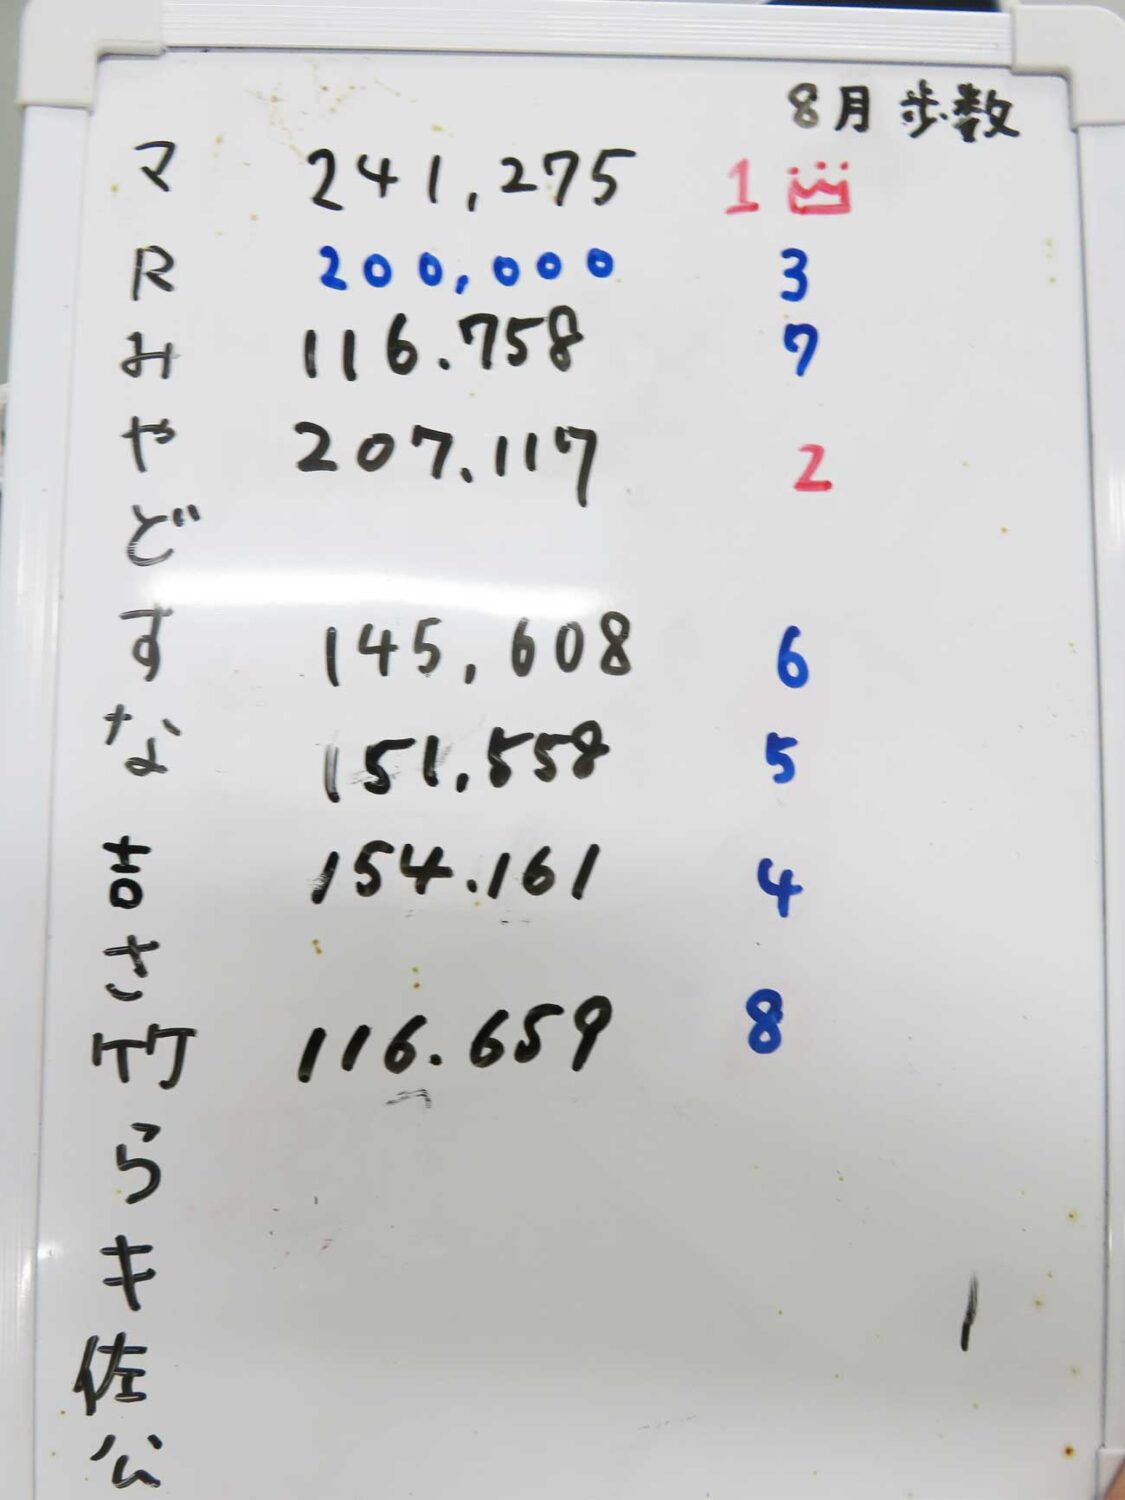 8月 歩数
マ 241,275 1
R 200,000 3
み 116.758 7
や 207.117 2
ど
す 145,608 6
な 151,558 5
吉 154.161 4
さ
竹 116.659 8
ら
キ
佐
公